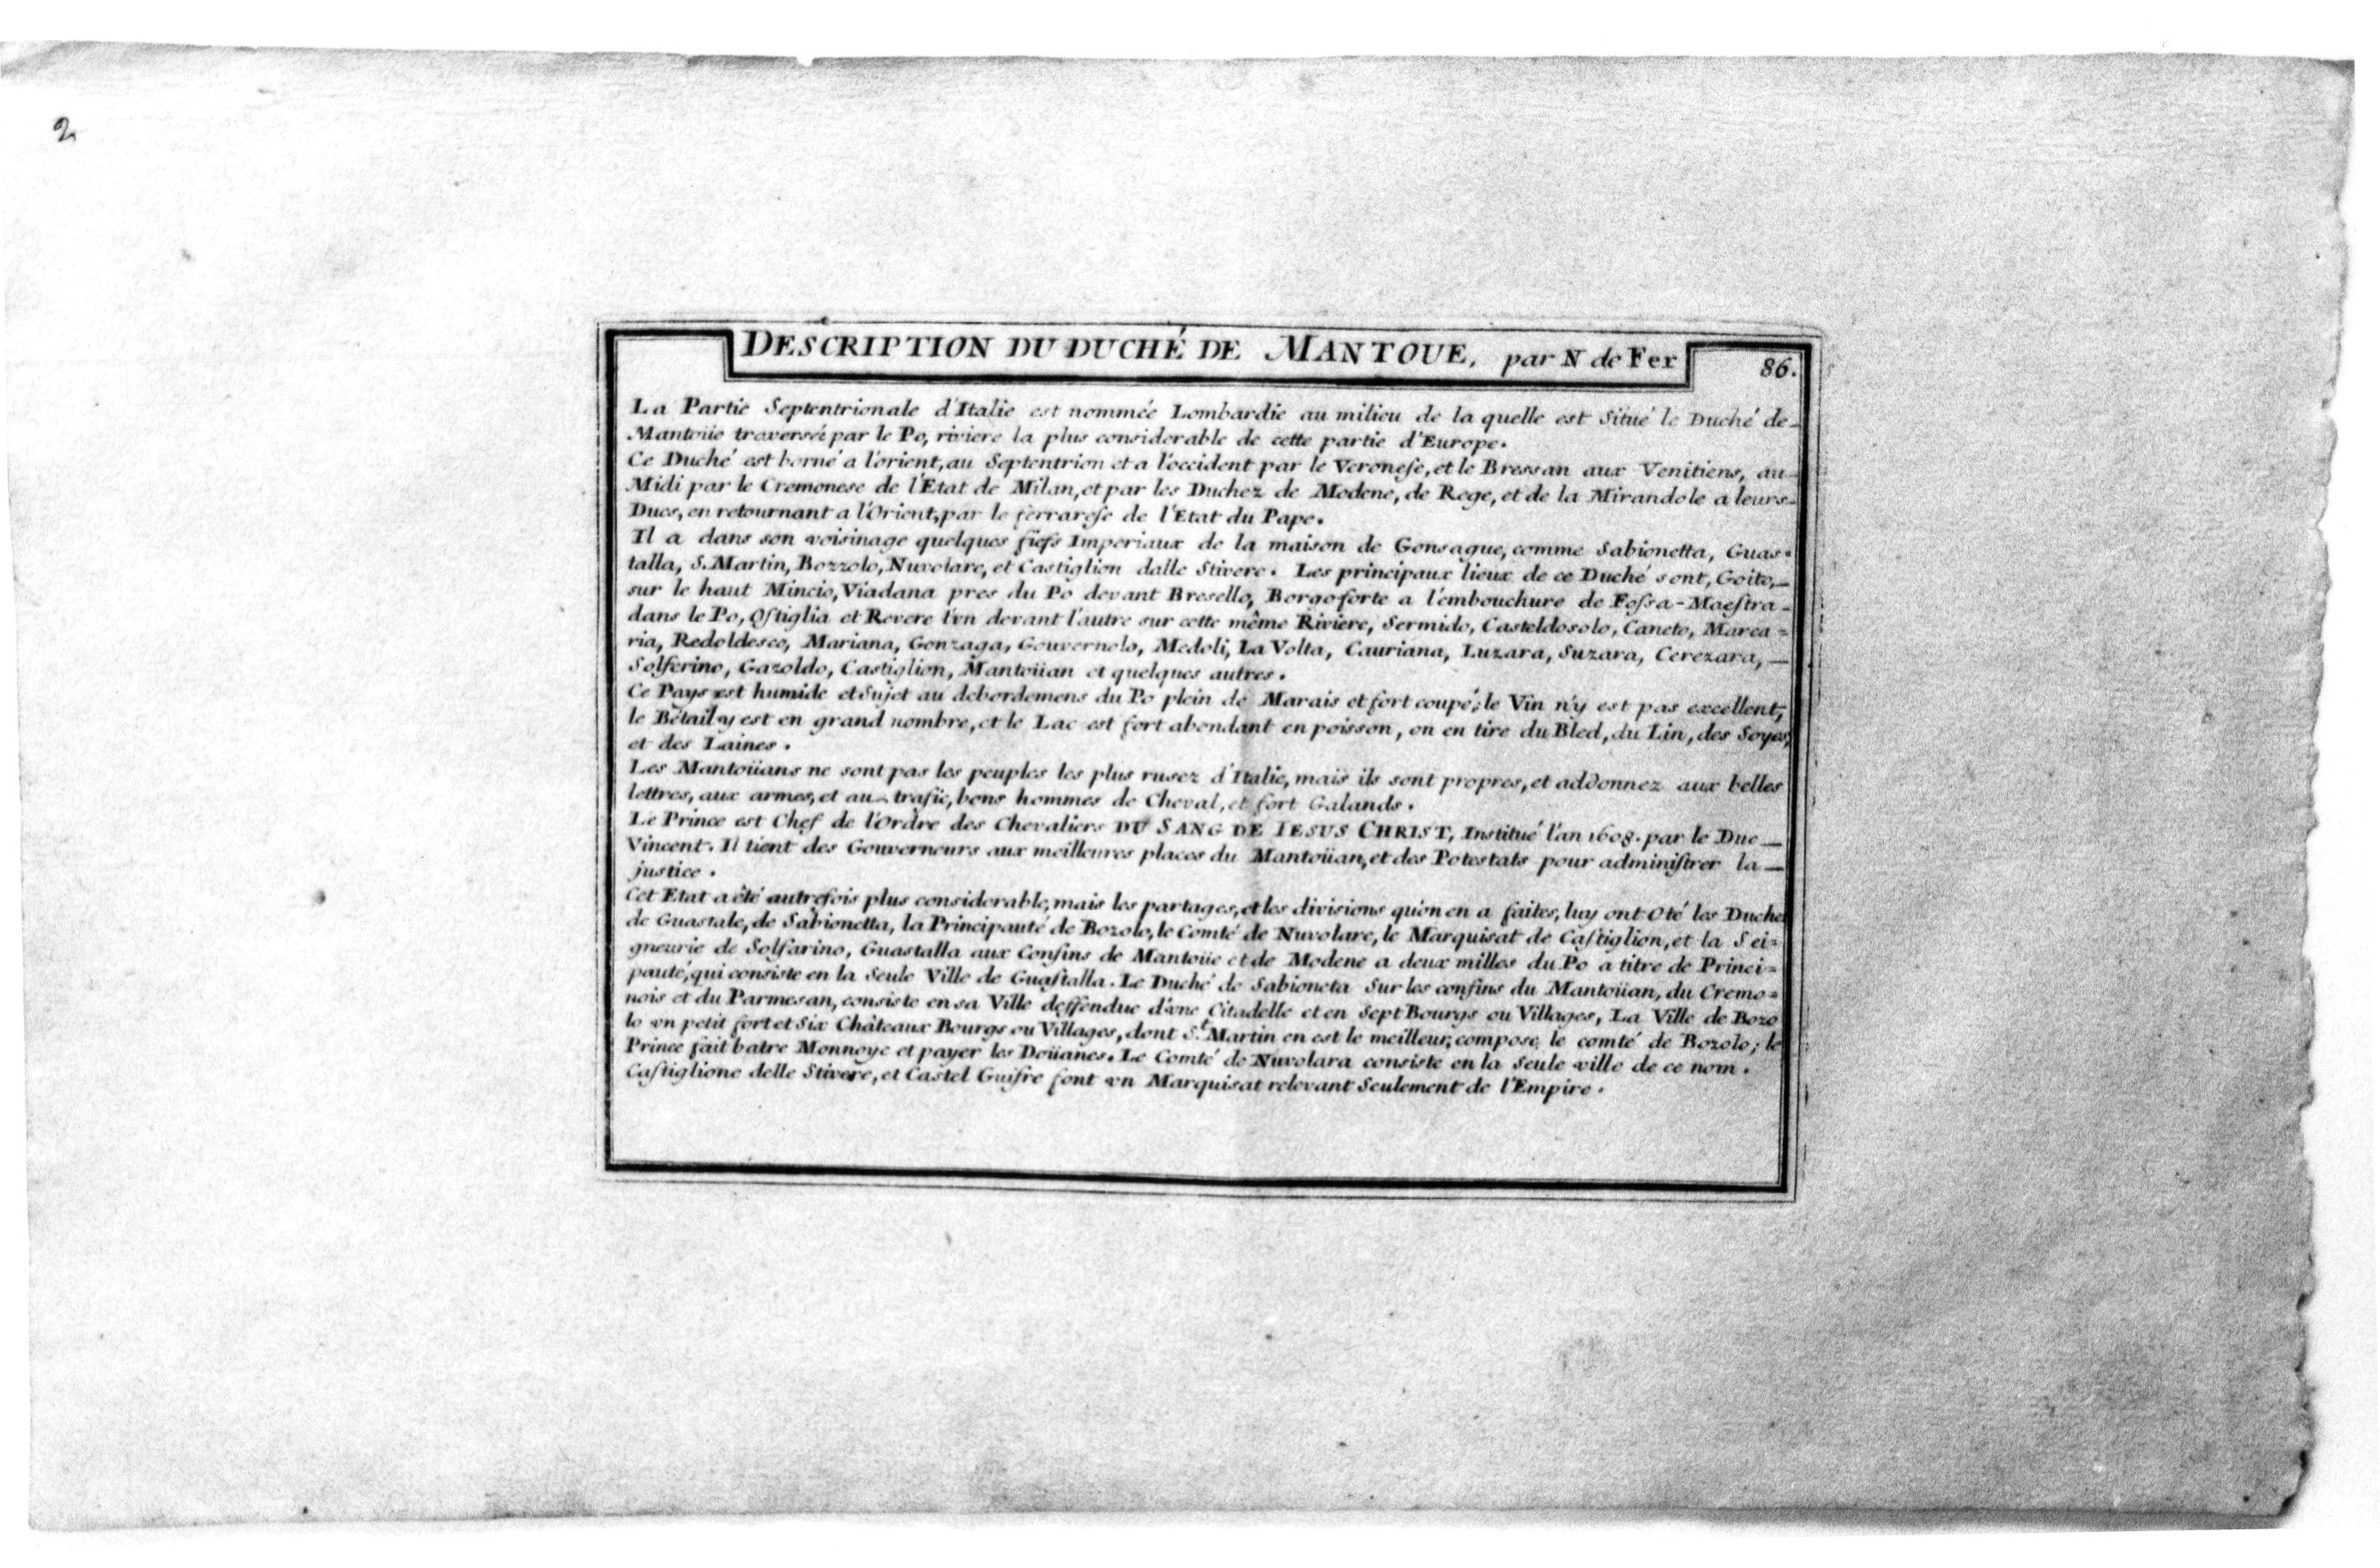 2
DESCRIPTION DU DUCHÉ DE MANTOUE, par N de Fer
86.
La Partie Septentrionale d'Italie est nommée Lombardie au milieu de la quelle est Situé le Duché de-
Mantoüe traversée par le Po, riviere la plus considerable de cette partie d'Europe.
Ce Duché est borné a l'orient, au Septentrion et a l'occident par le Veronese, et le Bressan aux Venitiens, au-
Midi par le Cremonese de l'Etat de Milan, et par les Duchez de Modene, de Rege, et de la Mirandole a leurs-
Ducs, en retournant a l'Orient, par le ferrarese de l'Etat du Pape.
Il a dans son voisinage quelques fiefs Imperiaux de la maison de Gonsague, comme Sabionetta, Guas=
talla, S. Martin, Bozzolo, Nuvolare, et Castiglion dalle Stivere. Les principaux lieux de ce Duché sont, Goito,-
sur le haut Mincio, Viadana pres du Po devant Bresello, Borgoforte a l'embouchure de Fossa-Maestra-
dans le Po, Ostiglia et Revere l'vn devant l'autre sur cette même Riviere, Sermido, Casteldosolo, Caneto, Marca=
ria, Redoldesco, Mariana, Gonzaga, Gouvernolo, Medoli, La Volta, Cauriana, Luzara, Suzara, Cerezara,-
Solferino, Gazoldo, Castiglion, Mantoüan et quelques autres.
Ce Pays est humide et Sujet au debordemens du Po plein de Marais et fort coupé; le Vin n'y est pas excellent,
le Bétail y est en grand nombre, et le Lac est fort abondant en poisson, on en tire du Bled, du Lin, des Soyes,
et des Laines.
Les Mantoüans ne sont pas les peuples les plus rusez d'Italie, mais ils sont propres, et addonnez aux belles
lettres, aux armes, et au trafic, bons hommes de Cheval, et fort Galands.
Le Prince est Chef de l'Ordre des Chevaliers DU SANG DE IESUS CHRIST, Institué l'an 1608. par le Duc-
Vincent. Il tient des Gouverneurs aux meilleures places du Mantoüan, et des Potestats pour administrer la-
justice.
Cet Etat a été autrefois plus considerable, mais les partages, et les divisions qu'on en a faites, luy ont Oté les Duchez
de Guastale, de Sabionetta, la Principauté de Bozolo, le Comté de Nuvolare, le Marquisat de Castiglion, et la Sei=
gneurie de Solfarino, Guastalla aux Confins de Mantoüe et de Modene a deux milles du Po a titre de Princi=
pauté, qui consiste en la Seule Ville de Guastalla. Le Duché de Sabioneta Sur les confins du Mantoüan, du Cremo=
nois et du Parmesan, consiste en sa Ville deffendue d'vne Citadelle et en Sept Bourgs ou Villages, La Ville de Bozo
lo vn petit fort et Six Châteaux Bourgs ou Villages, dont St. Martin en est le meilleur, compose le comté de Bozolo; le
Prince fait batre Monnoye et payer les Doüanes. Le Comté de Nuvolara consiste en la Seule ville de ce nom.
Castiglione delle Stivere, et Castel Guifre font vn Marquisat relevant Seulement de l'Empire.